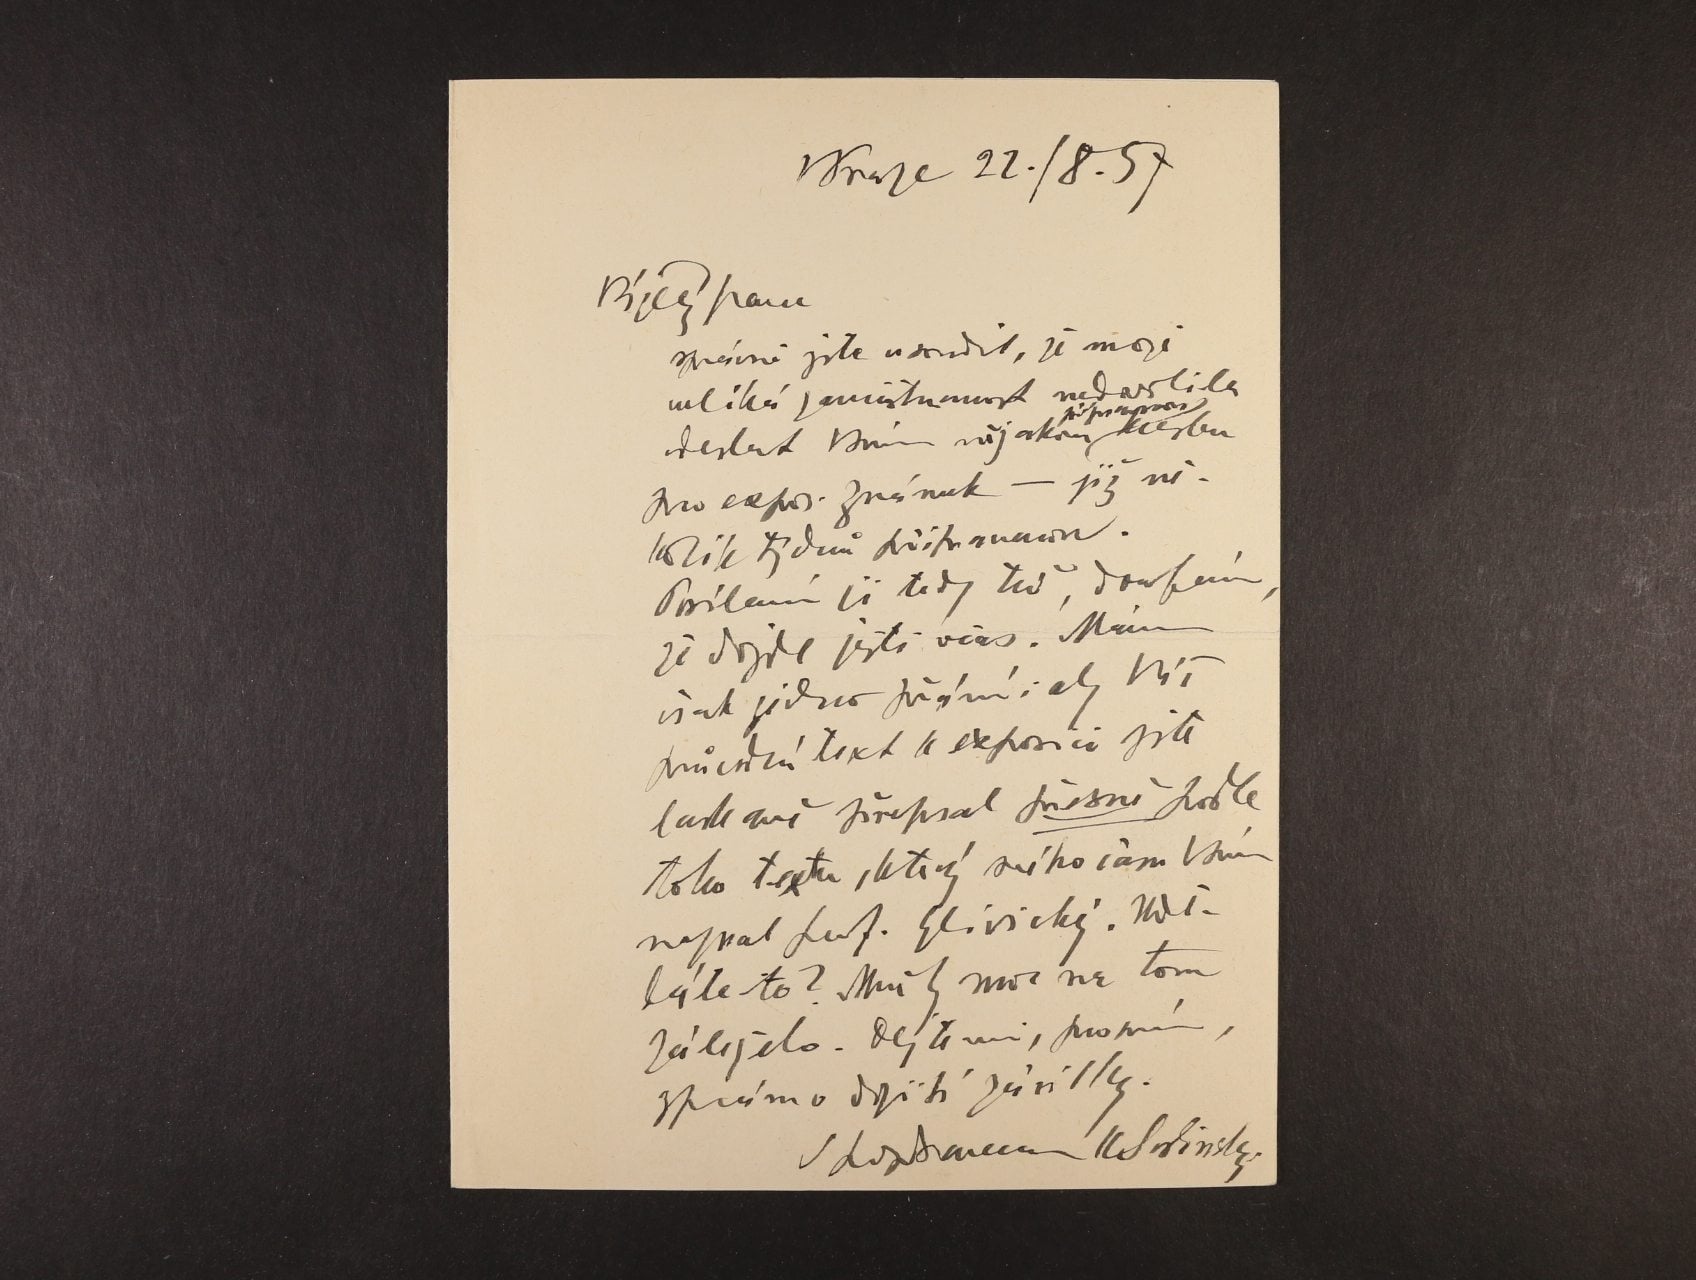 V Praze 22./8.57
Vážený pane
správně jste usoudil, že moje
veliká zaměstnanost nedovolila
odeslat Vám nějakou připravenou kresbu
pro expos. známek — již ně-
kolik týdnů připravenou.
Posílám ji tedy teď, doufám,
že dojde ještě včas. Mám
však jedno přání: aby Váš
průvodní text k exposici jste
laskavě přepsal přesně podle
toho textu, který svého času Vám
napsal prof. Glivický. Udě-
láte to? Mně by moc na tom
záleželo. Dejte mi, prosím,
zprávu o dojití zásilky.
S pozdravem K Svolinský.